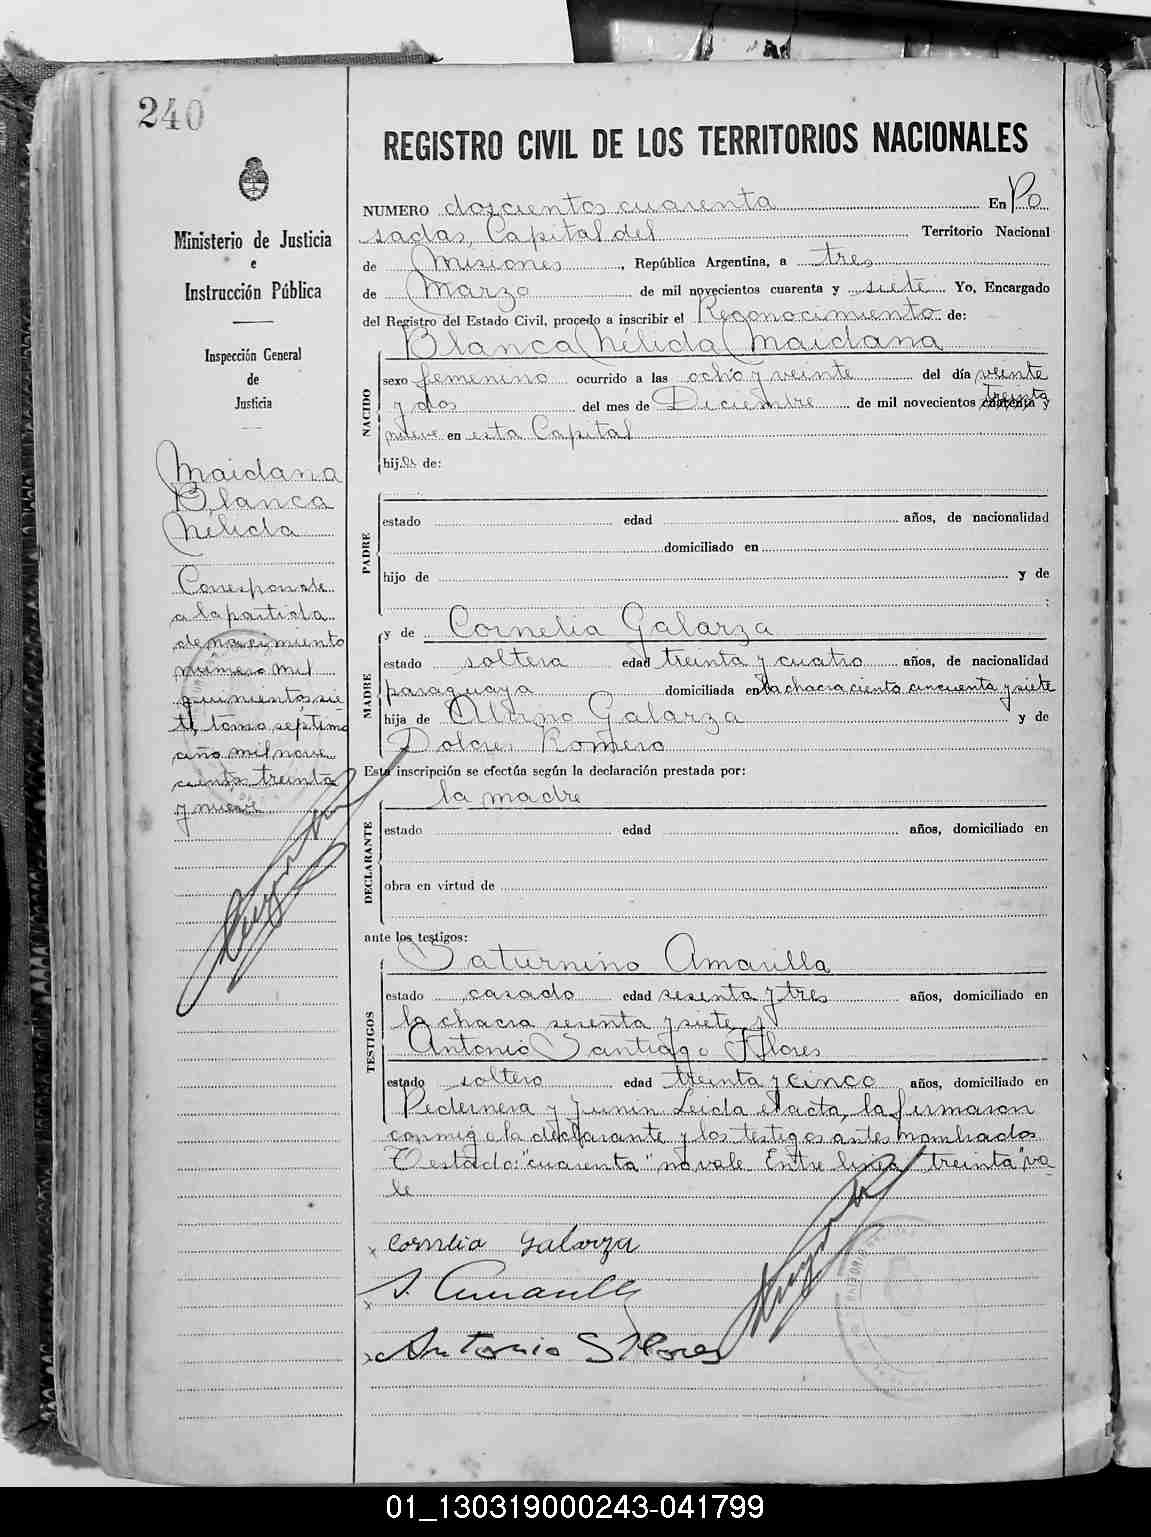 240
Ministerio de Justicia
e
Instrucción Pública
Inspección General
de
Justicia
Maidana
Blanca
Nélida
Corresponde
a la partida
de nacimiento
número mil
quinientos sie-
te, tomo séptimo
año mil nove-
cientos treinta
y nueve
REGISTRO CIVIL DE LOS TERRITORIOS NACIONALES
NUMERO doscientos cuarenta En Po
sadas, Capital del Territorio Nacional
de Misiones, República Argentina, a tres
de Marzo de mil novecientos cuarenta y siete Yo, Encargado
del Registro del Estado Civil, procedo a inscribir el Reconocimiento de:
NACIDO
Blanca Nélida Maidana
sexo femenino ocurrido a las ocho y veinte del día veinte
y dos del mes de Diciembre de mil novecientos cuarenta treinta y
nueve en esta Capital
hij.a de:
PADRE
estado edad años, de nacionalidad
domiciliado en
hijo de y de
;
MADRE
y de Cornelia Galarza
estado soltera edad treinta y cuatro años, de nacionalidad
paraguaya domiciliada en la chacra ciento cincuenta y siete
hija de Galarza y de
Dolores Romero
Esta inscripción se efectúa según la declaración prestada por:
la madre
DECLARANTE
estado edad años, domiciliado en
obra en virtud de
ante los testigos:
TESTIGOS
Saturnino Amarilla
estado casado edad sesenta y tres años, domiciliado en
la chacra sesenta y siete y
Antonio Santiago Flores
estado soltero edad treinta y cinco años, domiciliado en
Pedernera y Junin Leida el acta, la firmaron
conmigo la declarante y los testigos antes nombrados
Testado: "cuarenta" no vale Entre linea "treinta" va-
le
x Cornelia Galarza
x S. Amarilla
x Antonio S Flores
01_130319000243-041799